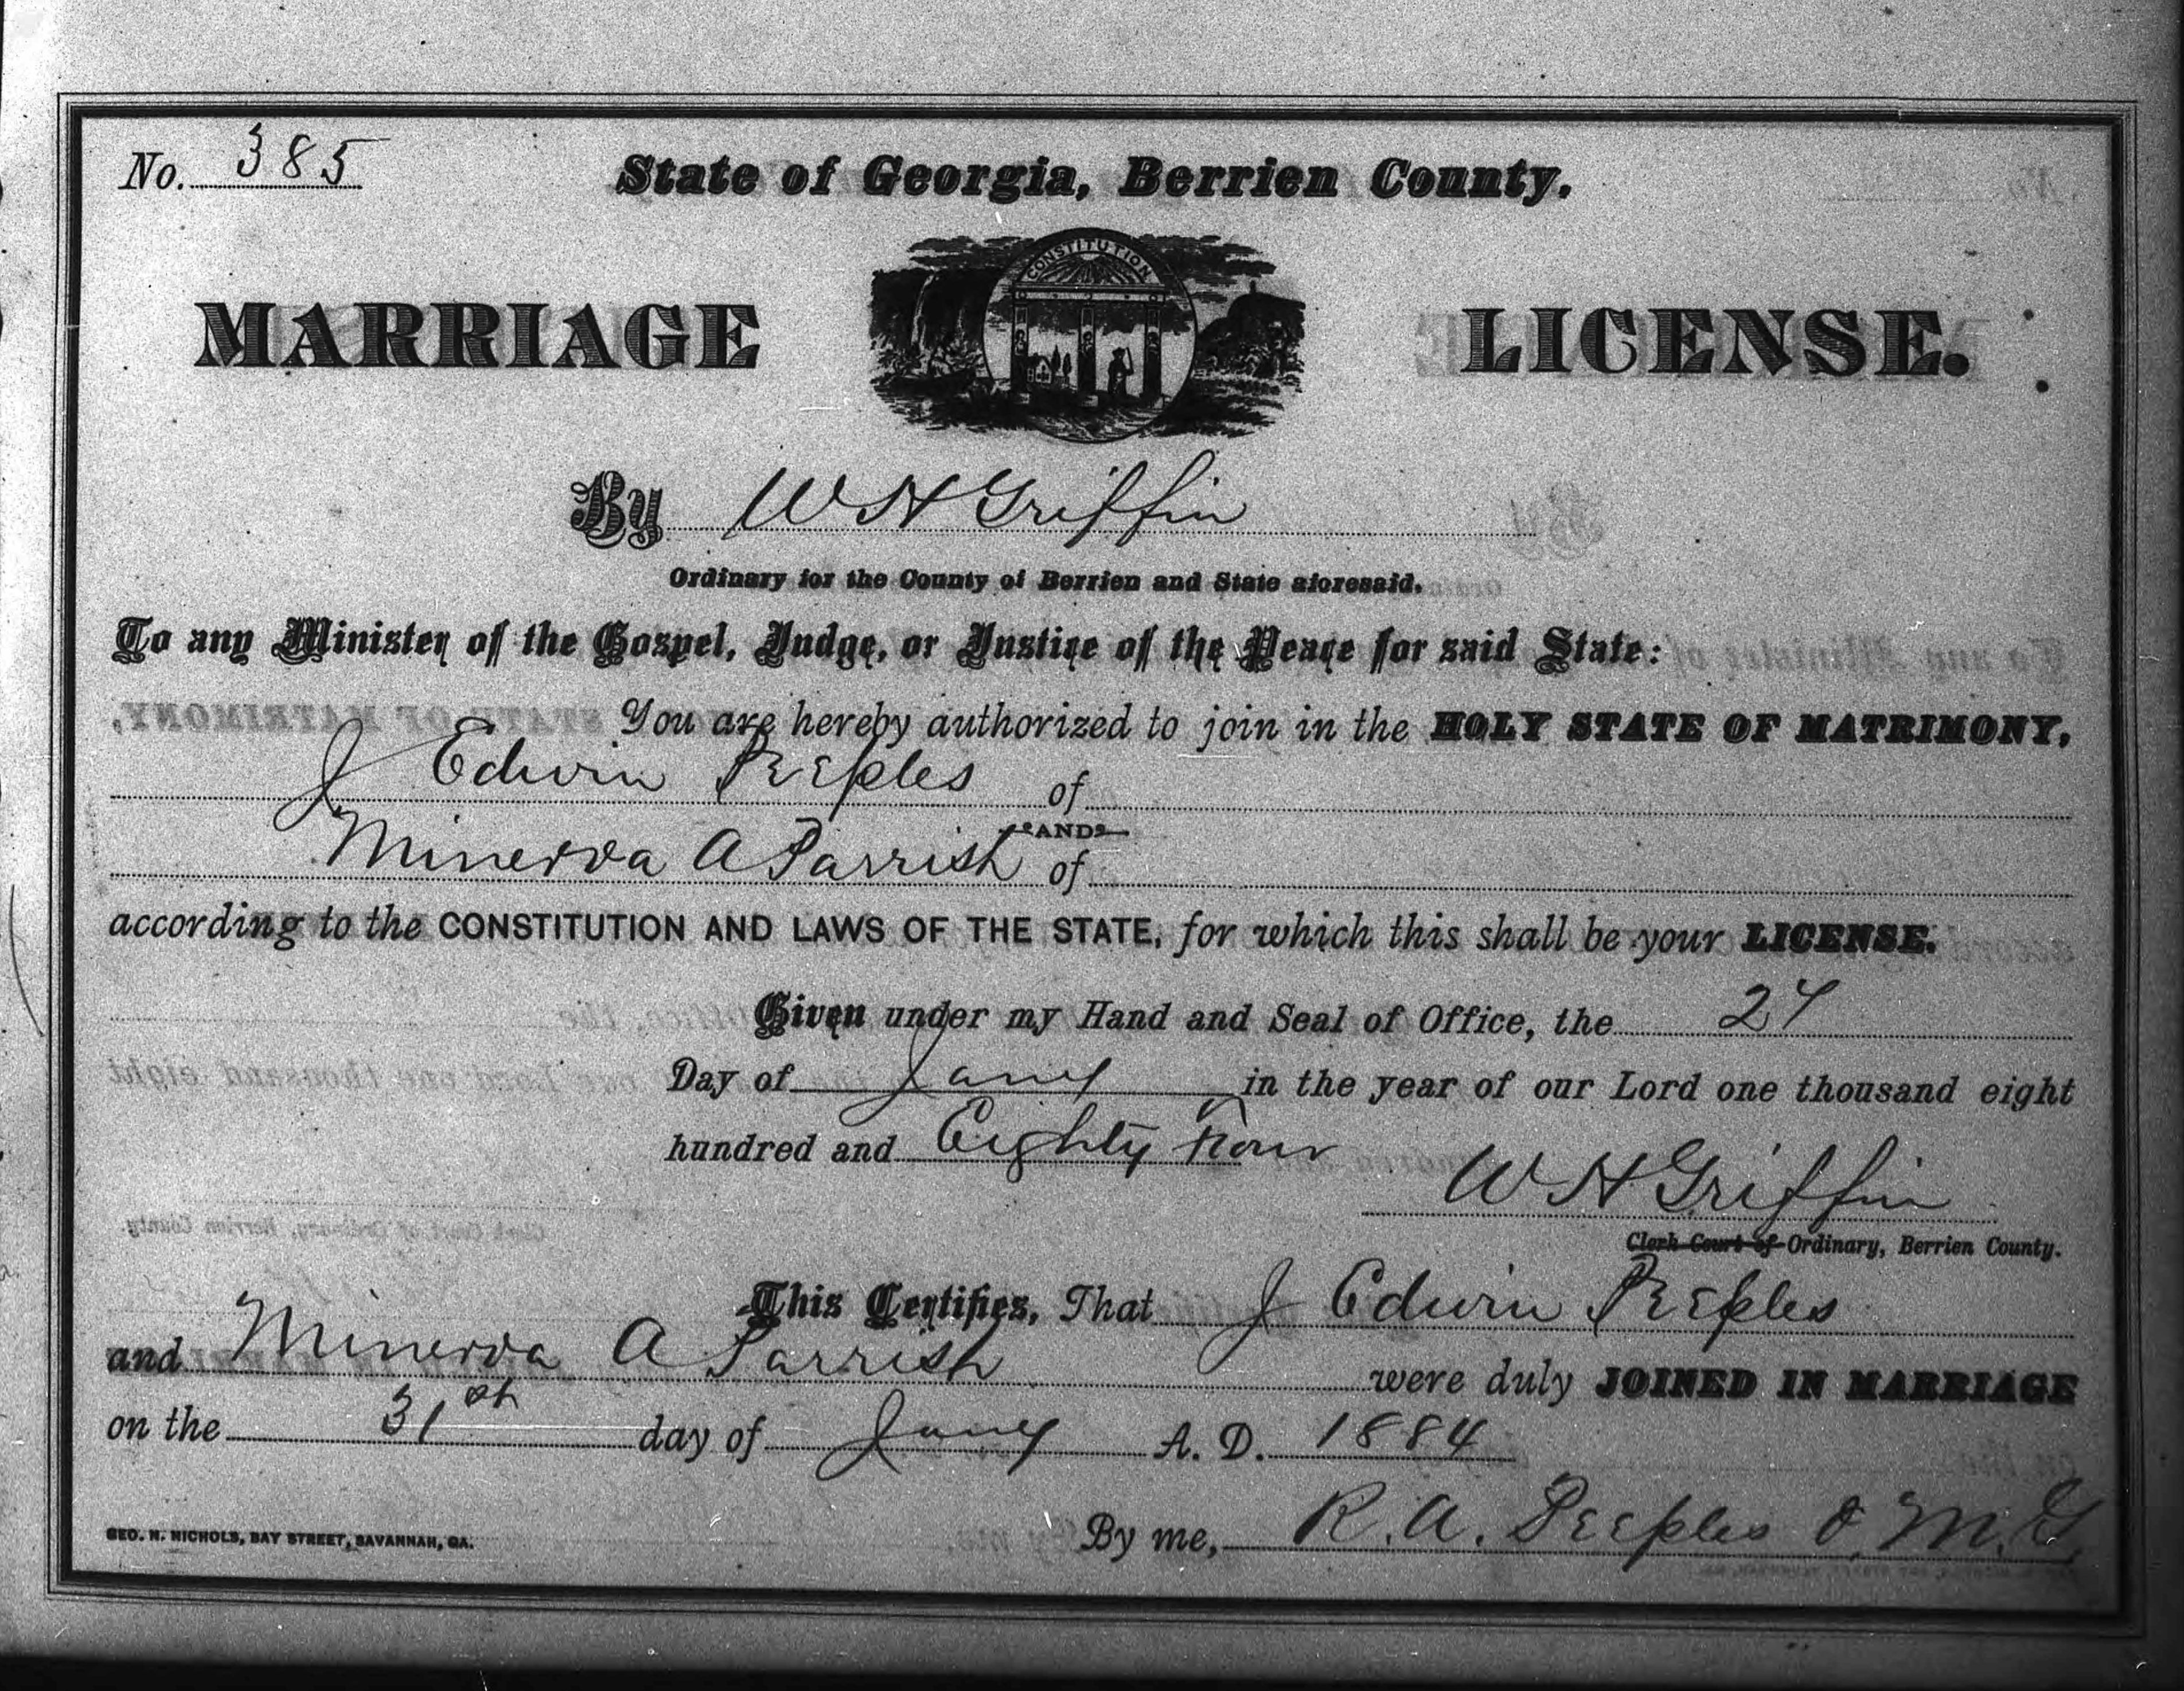 No. 385
State of Georgia, Berrien County.
CONSTITUTION
MARRIAGE LICENSE.
By W H Griffin
Ordinary for the County of Berrien and State aforesaid.
To any Minister of the Gospel, Judge, or Justice of the Peace for said State:
You are hereby authorized to join in the HOLY STATE OF MATRIMONY,
J Edwin Peeples of
AND
Minerva A Parrish of
according to the CONSTITUTION AND LAWS OF THE STATE, for which this shall be your LICENSE.
Given under my Hand and Seal of Office, the 24
Day of Jany in the year of our Lord one thousand eight
hundred and Eighty Four
W H Griffin
Clerk Court of Ordinary, Berrien County.
This Certifies, That J Edwin Peeples
and Minerva A Parrish were duly JOINED IN MARRIAGE
on the 31st day of Jany A. D. 1884
By me, R. A. Peeples O. M. G.
GEO. N. NICHOLS, BAY STREET, SAVANNAH, GA.